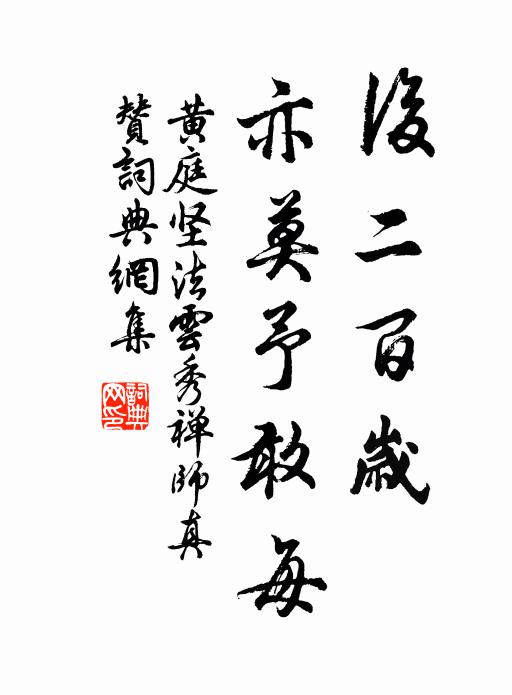 後二百歲
亦莫予敢每
黄庭坚法雲秀禅師真
贊詞典網集
詞典
网印